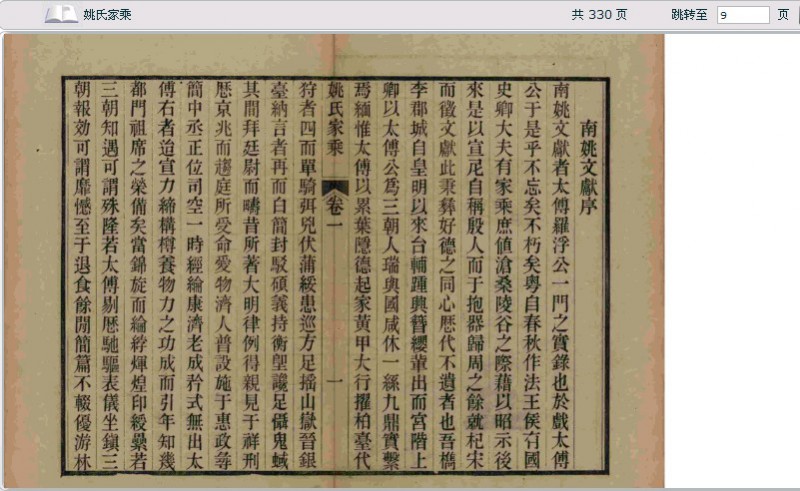 姚氏家乘
共 330 页
跳转至 9 页
南姚文獻序
南姚文獻者太傅羅浮公一門之實錄也於戲太傅
公于是乎不忘矣不朽矣粵自春秋作法王侯有國
史卿大夫有家乘庶値滄桑陵谷之際藉以昭示後
來是以宣尼自稱殷人而于抱器歸周之餘就杞宋
而徵文獻此秉彝好德之同心歷代不遺者也吾檇
李郡城自皇明以來台輔踵興簪纓輩出而宮階上
卿以太傅公爲三朝人瑞與國咸休一絲九鼎實繫
焉緬惟太傅以累葉隱德起家黃甲大行擢柏臺代
姚氏家乘 卷一 一
狩者四而單騎弭兇伏蒲綏患巡方足搖山嶽晉銀
臺納言者再而白簡封駁碩義持衡望讒足懾鬼蜮
其間拜廷尉而疇昔所著大明律例得親見于祥刑
歷京兆而趨庭所愛命愛物濟人普設施于惠政尋
簡中丞正位司空一時經綸康濟老成矜式無出太
傅右者迨宣力締構樽養物力之功成而引年知幾
都門祖席之榮備矣當錦旋而綸綍煇煌印綬纍若
三朝知遇可謂殊隆若太傅剔歷馳驅表儀坐鎮三
朝報効可謂靡憾至于退食餘閒簡篇不輟優游林